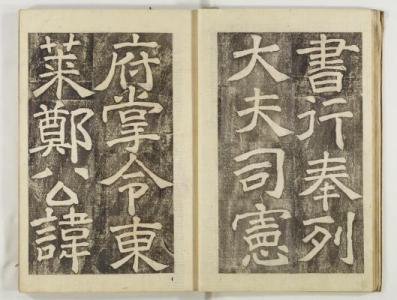 書行奉列
大夫司憲
府掌令東
莱鄭公諱